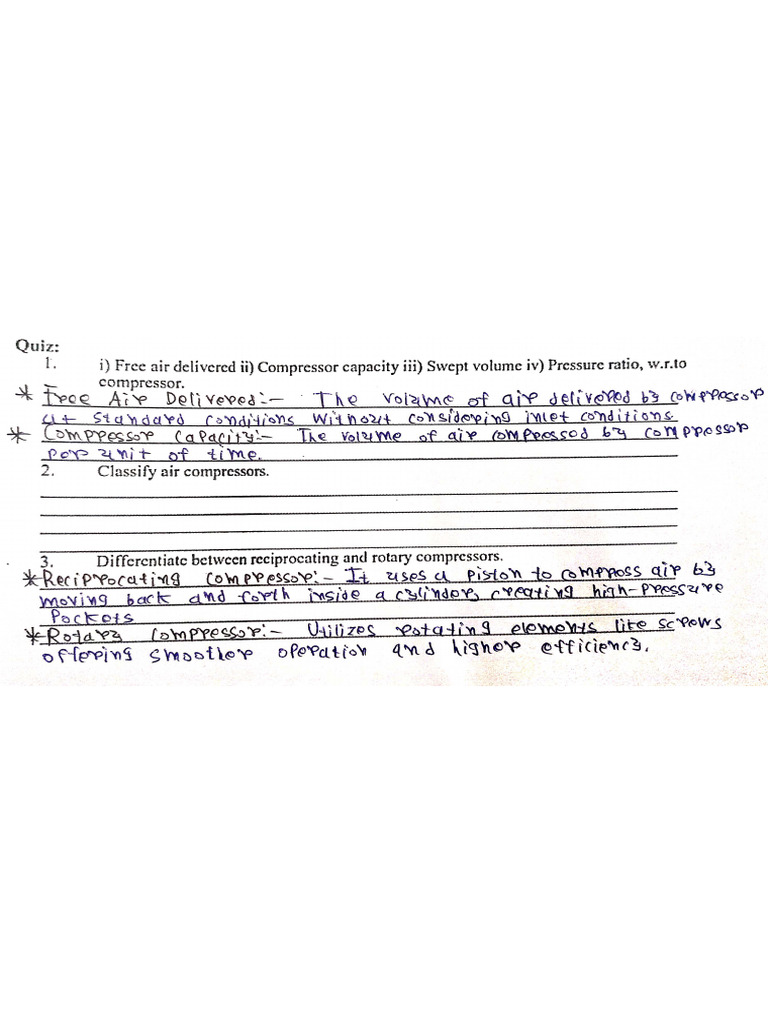 Quiz:
1. i) Free air delivered ii) Compressor capacity iii) Swept volume iv) Pressure ratio, w.r.to
compressor.
* Free Air Delivered:- The volume of air delivered by compressor
at standard conditions without considering inlet conditions.
* Compressor Capacity:- The volume of air compressed by compressor
per unit of time.
2. Classify air compressors.
3. Differentiate between reciprocating and rotary compressors.
* Reciprocating compressor:- It uses a piston to compress air by
moving back and forth inside a cylinder, creating high-pressure
Pockets
* Rotary compressor:- Utilizes rotating elements like screws
offering smoother operation and higher efficiency.